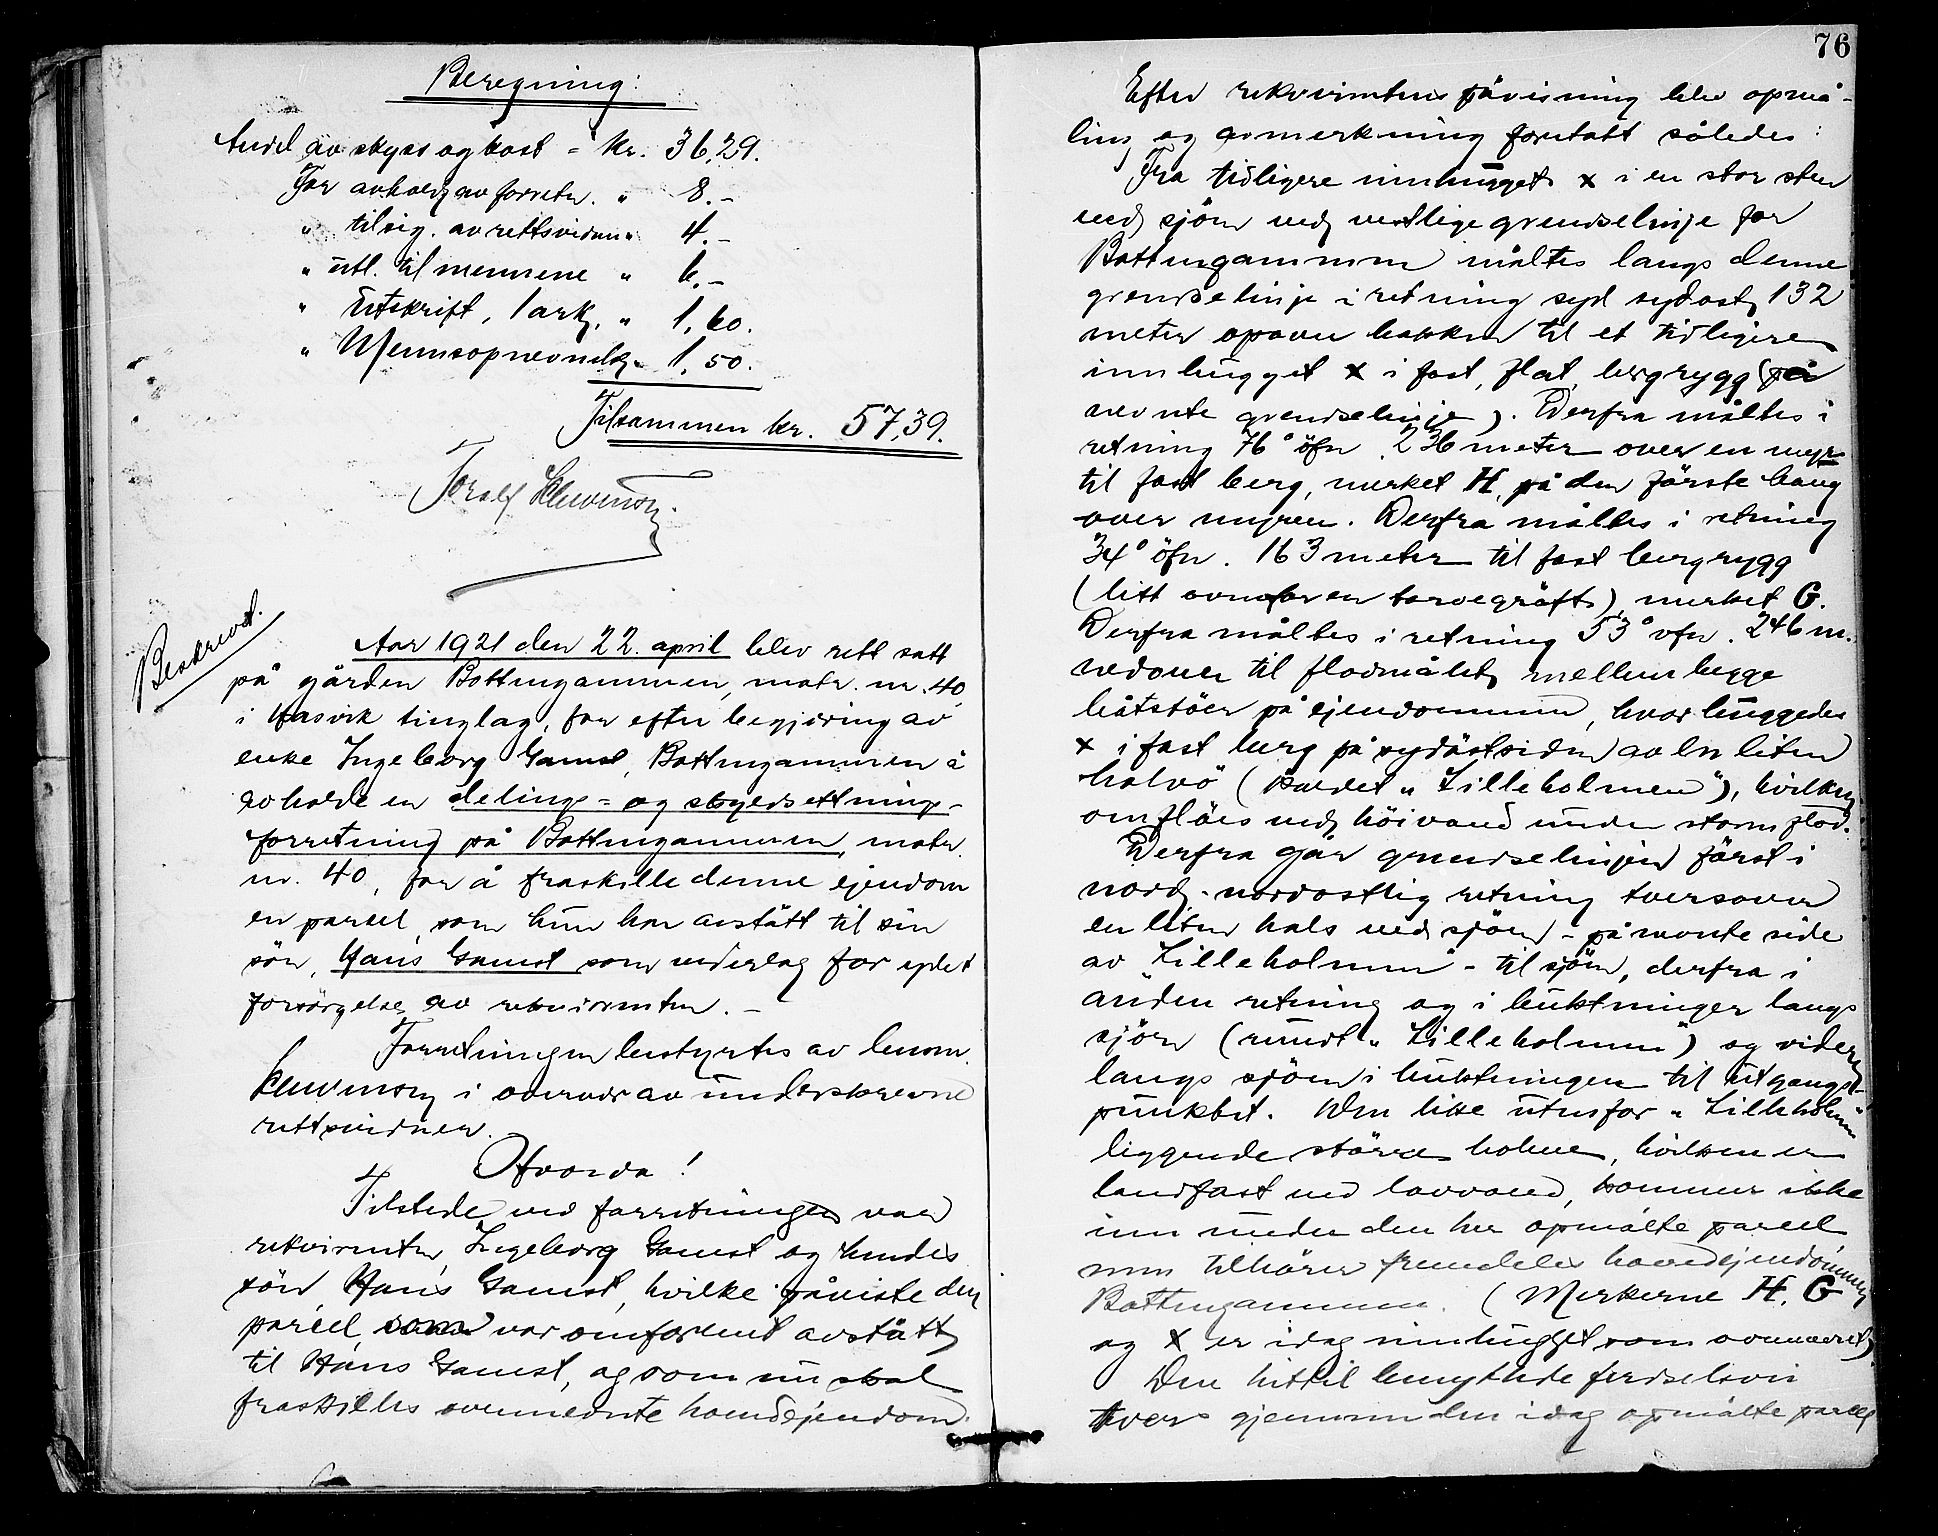 Beregning:
Andel av skyss og kost = kr. 36,29.
For avholdg av forretn. " 8.–
" tilsig. av rettsvidner " 4.–
" utl. til mennene " 6.–
" Utskrift, 1 ark, " 1,60.
" Mennsopnevnelse " 1,50.
Tilsammen kr. 57,39.
Toralf
Beskrevet.
Aar 1921 den 22. april blev rett satt
på gården Bottengammen, matr. nr. 40,
i Hasvik tinglag, for efter begjæring av
enke Ingeborg Gamst, Bottengammen å
avholde en delings= og skyldsettnings-
forretning på Bottengammen, matr.
nr. 40, for å fraskille denne ejendom
en parcel, som hun har avstått til sin
sön, Hans Gamst som vederlag for ydet
forsörgelse av rekvirenten. –
Forretningen bestyrtes av lensm.
i overvær av underskrevne
rettsvidner.
Hvorda!
Tilstede ved forretningen var
rekvirenten, Ingeborg Gamst og hendes
sön Hans Gamst, hvilke påviste den
parcel, som var omforent avstått
til Hans Gamst, og som nu skal
fraskilles ovennevnte hovedejendom.
76
Efter rekvirentens påvisning blev opmå-
ling og avmerkning foretatt således:
Fra tidligere innhugget x i en stor sten
ved sjöen ved vestlige grendselinje for
Bottengammen måltes langs denne
grendselinje i retning syd sydost, 132
meter opover bakken til et tidligere
innhugget x i fast, flat, bergrygg (på
nevnte grendselinje). Derfra måltes i
retning 76° öfn 236 meter over en myr
til fast berg, merket H, på den förste haug
over myren. Derfra måltes i retning
34° öfn. 163 meter til fast bergrygg
(litt ovenfor en torvegröft), merket G.
Derfra måltes i retning 53° vfn. 246 m.
nedover til flodmålet, mellem begge
båtstöer på ejendommen, hvor huggedes
x i fast berg på sydöstsiden av en liten
halvö (kaldet „Lilleholmen“), hvilken
omflöes ved höivand under storm flod.
Derfra går grendselinjen först i
nord-nordostlig retning tversover
en liten hals ved sjöen – på nevnte side
av „Lilleholmen“ – til sjöen, derfra i
anden retning og i buktninger langs
sjöen (rundt „Lilleholmen“) og videre
langs sjöen i buktningen til utgangs-
punktet. Den like utenfor „Lilleholmen“
liggende större holme, hvilken er
landfast ved lavvand, kommer ikke
inn under den her opmålte parcel
men tilhörer fremdeles hovedejendommen
Bottengammen. (Merkerne H, G
og x er idag innhugget som ovennevnt)
Den hittil benyttede ferdselsvei
tvers gjennem den idag opmålte parcel